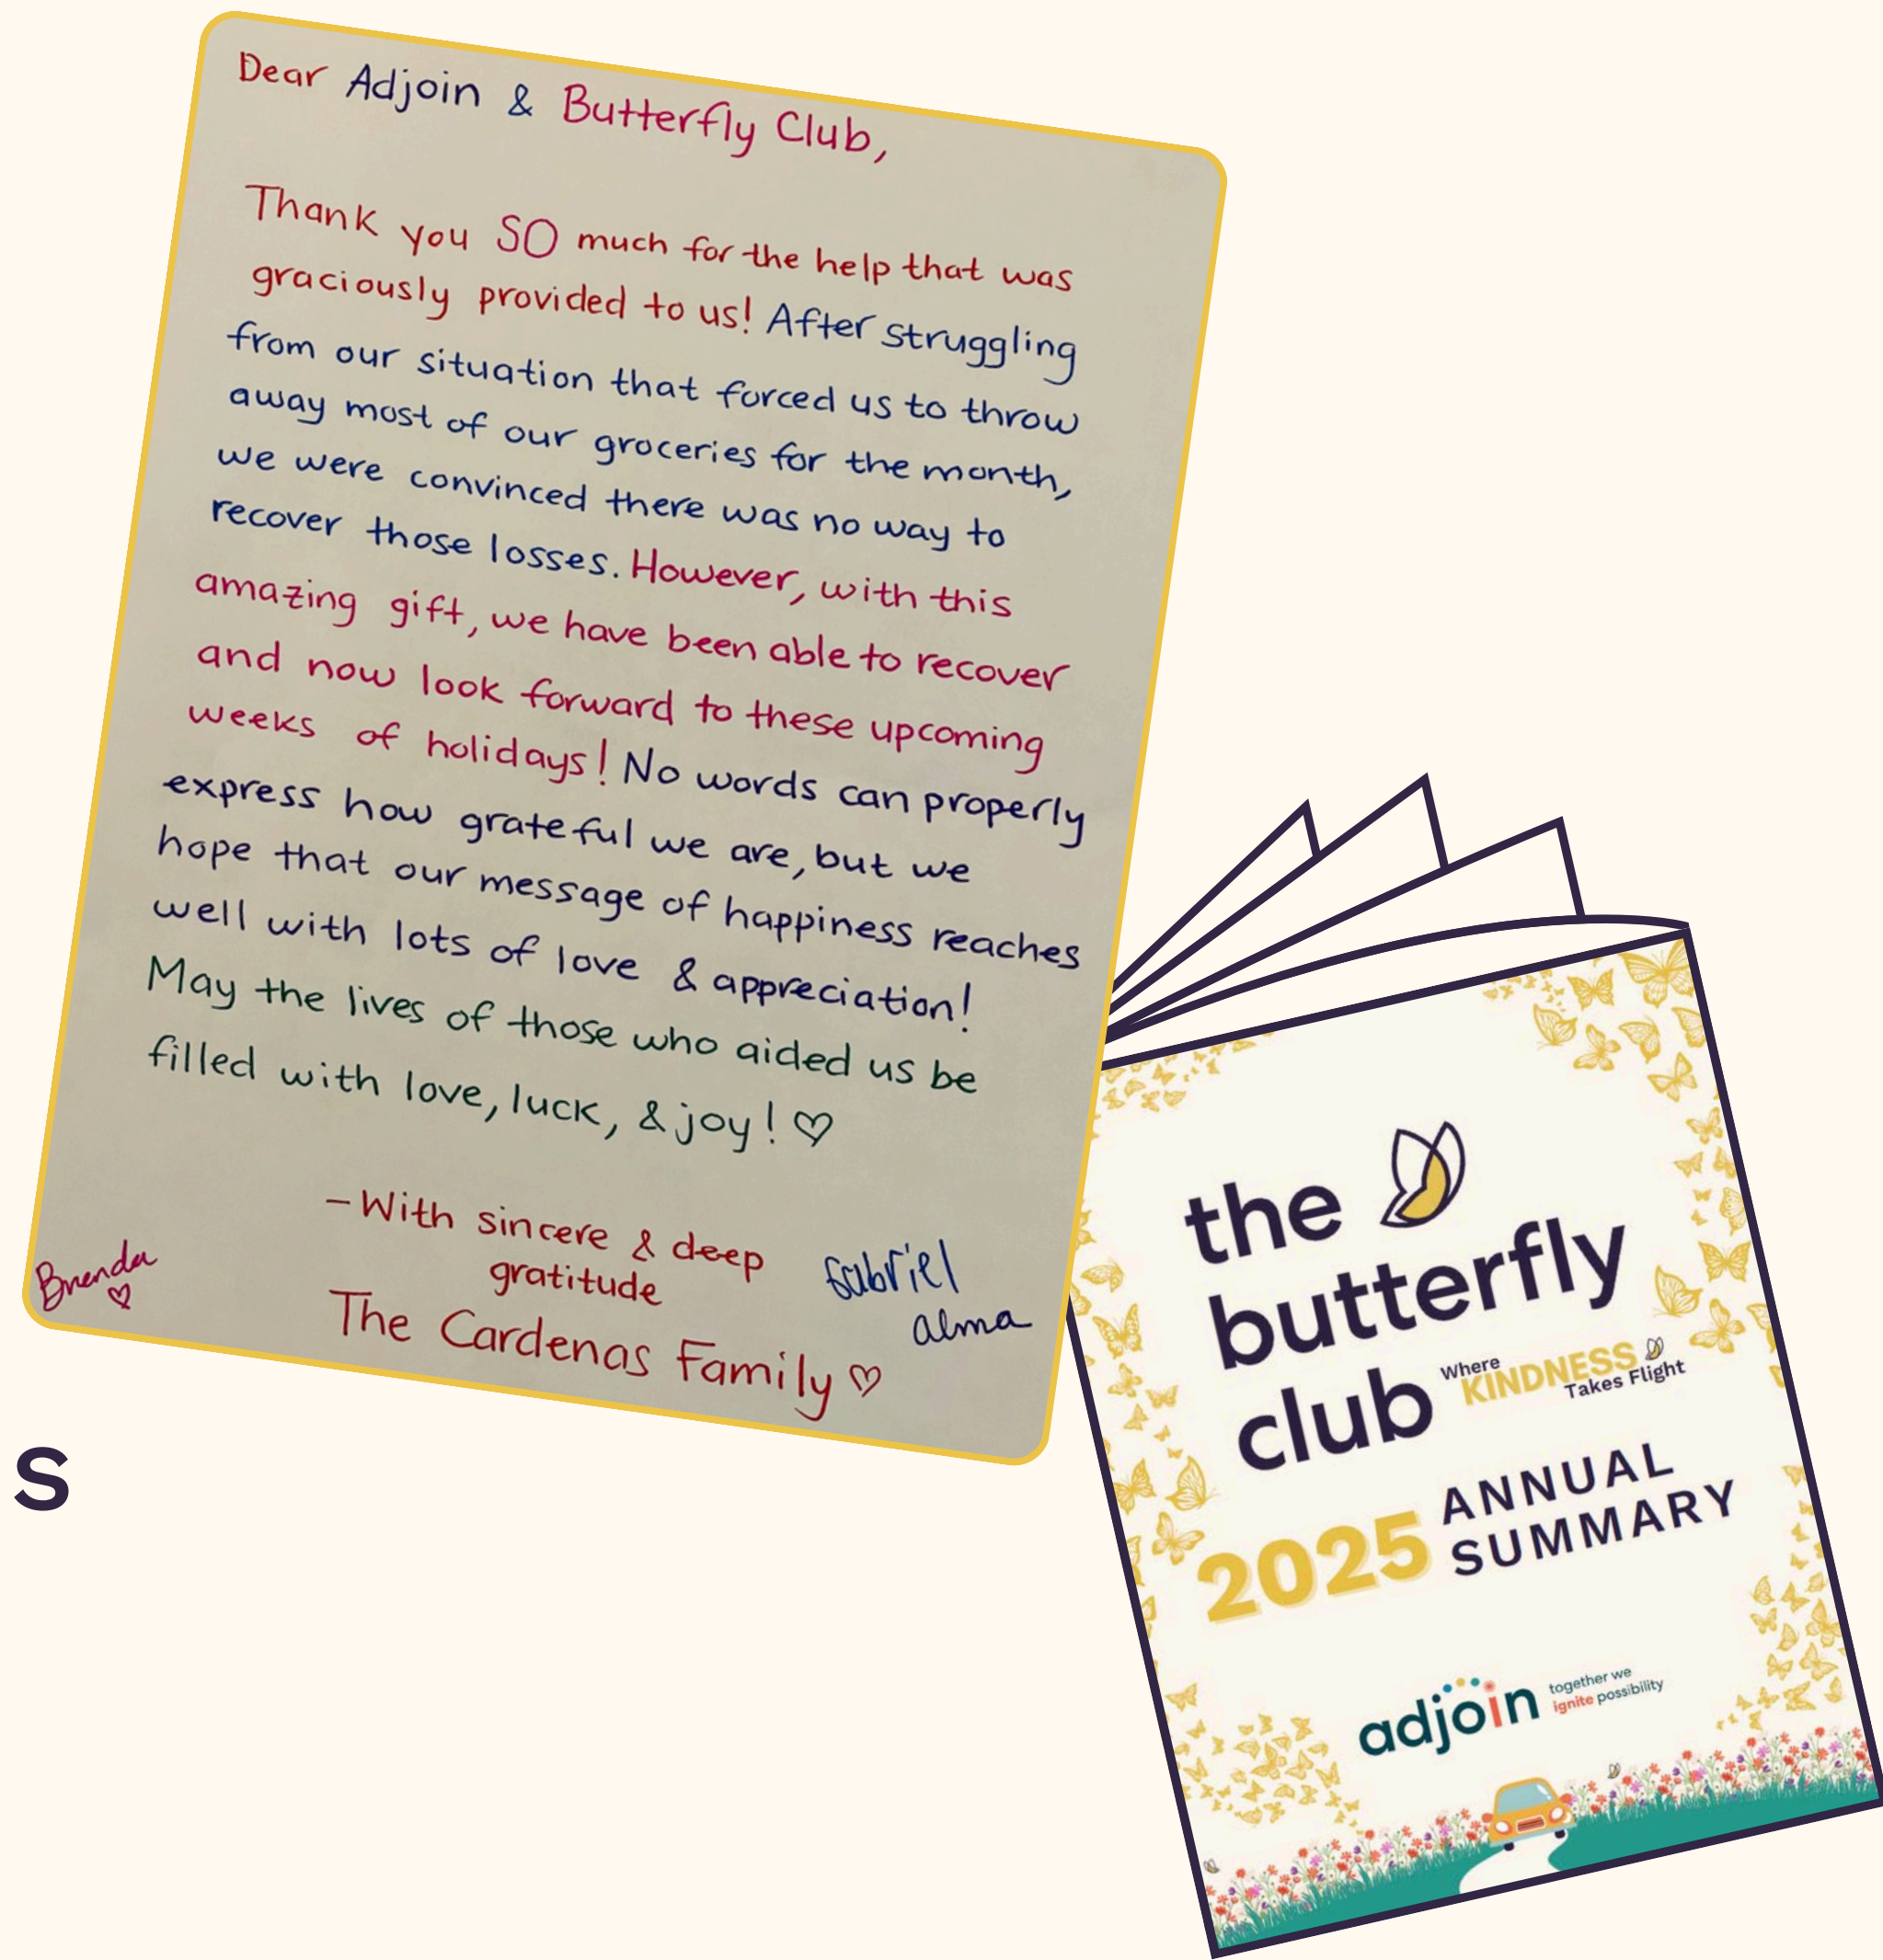 Dear Adjoin & Butterfly Club,
Thank you SO much for the help that was
graciously provided to us! After struggling
from our situation that forced us to throw
away most of our groceries for the month,
we were convinced there was no way to
recover those losses. However, with this
amazing gift, we have been able to recover
and now look forward to these upcoming
weeks of holidays! No words can properly
express how grateful we are, but we
hope that our message of happiness reaches
well with lots of love & appreciation!
May the lives of those who aided us be
filled with love, luck, & joy! ♡
- With sincere & deep
gratitude
The Cardenas Family ♡
Brenda ♡
Gabriel
alma
S
the
butterfly
club
Where
KINDNESS
Takes Flight
2025
ANNUAL
SUMMARY
adjoin
together we
ignite possibility